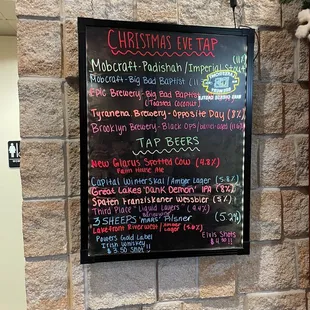 CHRISTMAS EVE TAP
Mobcraft-Padishah/Imperial Stout
Mobcraft-Big Bad Baptist
Epic Brewery-Big Bad Baptist
(Toasted Coconut)
Tyranena Brewery-Opposite Day (8%)
Brooklyn Brewery-Black Ops
TAP BEERS
New Glarus Spotted Cow (4.8%)
Farm House Ale
Capital Winterskal/Amber Lager (5.8%)
Great Lakes "Dank Demon" IPA (8%)
Spaten Franziskaner Weissbier (5%)
Third Place "Liquid Layers"
3 SHEEPS Pilsner (5.2%)
Lakefront Riverwest/Amber Lager
Powers Gold Label
Irish Whiskey
$3.50 SHOT!!
Elvis Shots
$4.50!!